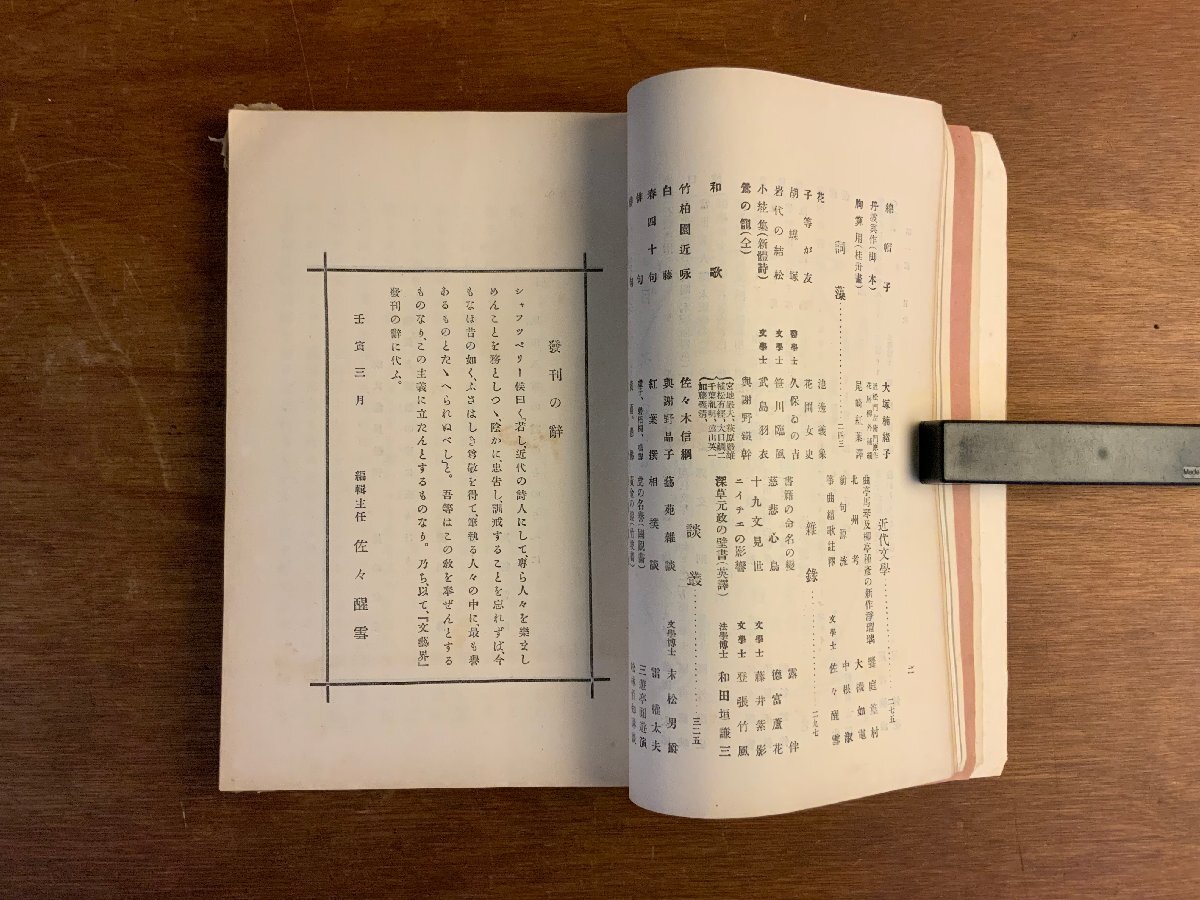 綿帽子
大塚楠緒子
丹波與作(脚本)
胸算用(桂舟畫)
尾崎紅葉譯
詞藻…………二四三
花
池邊義象
子等が友
花間女史
胡蝶塚
醫學士 久保ゐの吉
岩代の結松
文學士 笹川臨風
小紘集(新體詩)
文學士 武島羽衣
鶯の籠(全)
與謝野鐵幹
和歌
竹柏園近咏
佐々木信綱
白藤
與謝野晶子
春四十句
紅葉撰
近代文學…………二七五
曲亭馬琴及柳亭種彦の新作淨瑠璃
饗庭篁村
北州考
大槻如電
前句源流
中根淑
箏曲組歌註釋
文學士 佐々醒雪
雜錄…………二九七
書籍の命名の變
露伴
慈悲心鳥
德富蘆花
十九文見世
文學士 藤井紫影
ニイチエの影響
文學士 登張竹風
深草元政の壁書(英譯)
法學博士 和田垣謙三
談叢…………三二五
藝苑雜談
文學博士 末松男爵
相撲談
雷權太夫
三遊亭圓遊演
二
發刊の辭
シャフツベリー侯曰く、若し近代の詩人にして、專ら人々を樂まし
めんことを務としつゝ、陰かに、忠告し、訓戒することを忘れずば、今
もなほ昔の如く、ふさはしき尊敬を得て、筆執る人々の中に、最も譽
あるものとたゝへられぬべしと。吾等はこの敎を奉ぜんとする
ものなり、この主義に立たんとするものなり。乃ち以て、『文藝界』
發刊の辭に代ふ。
壬寅三月
編輯主任 佐々醒雪
Made